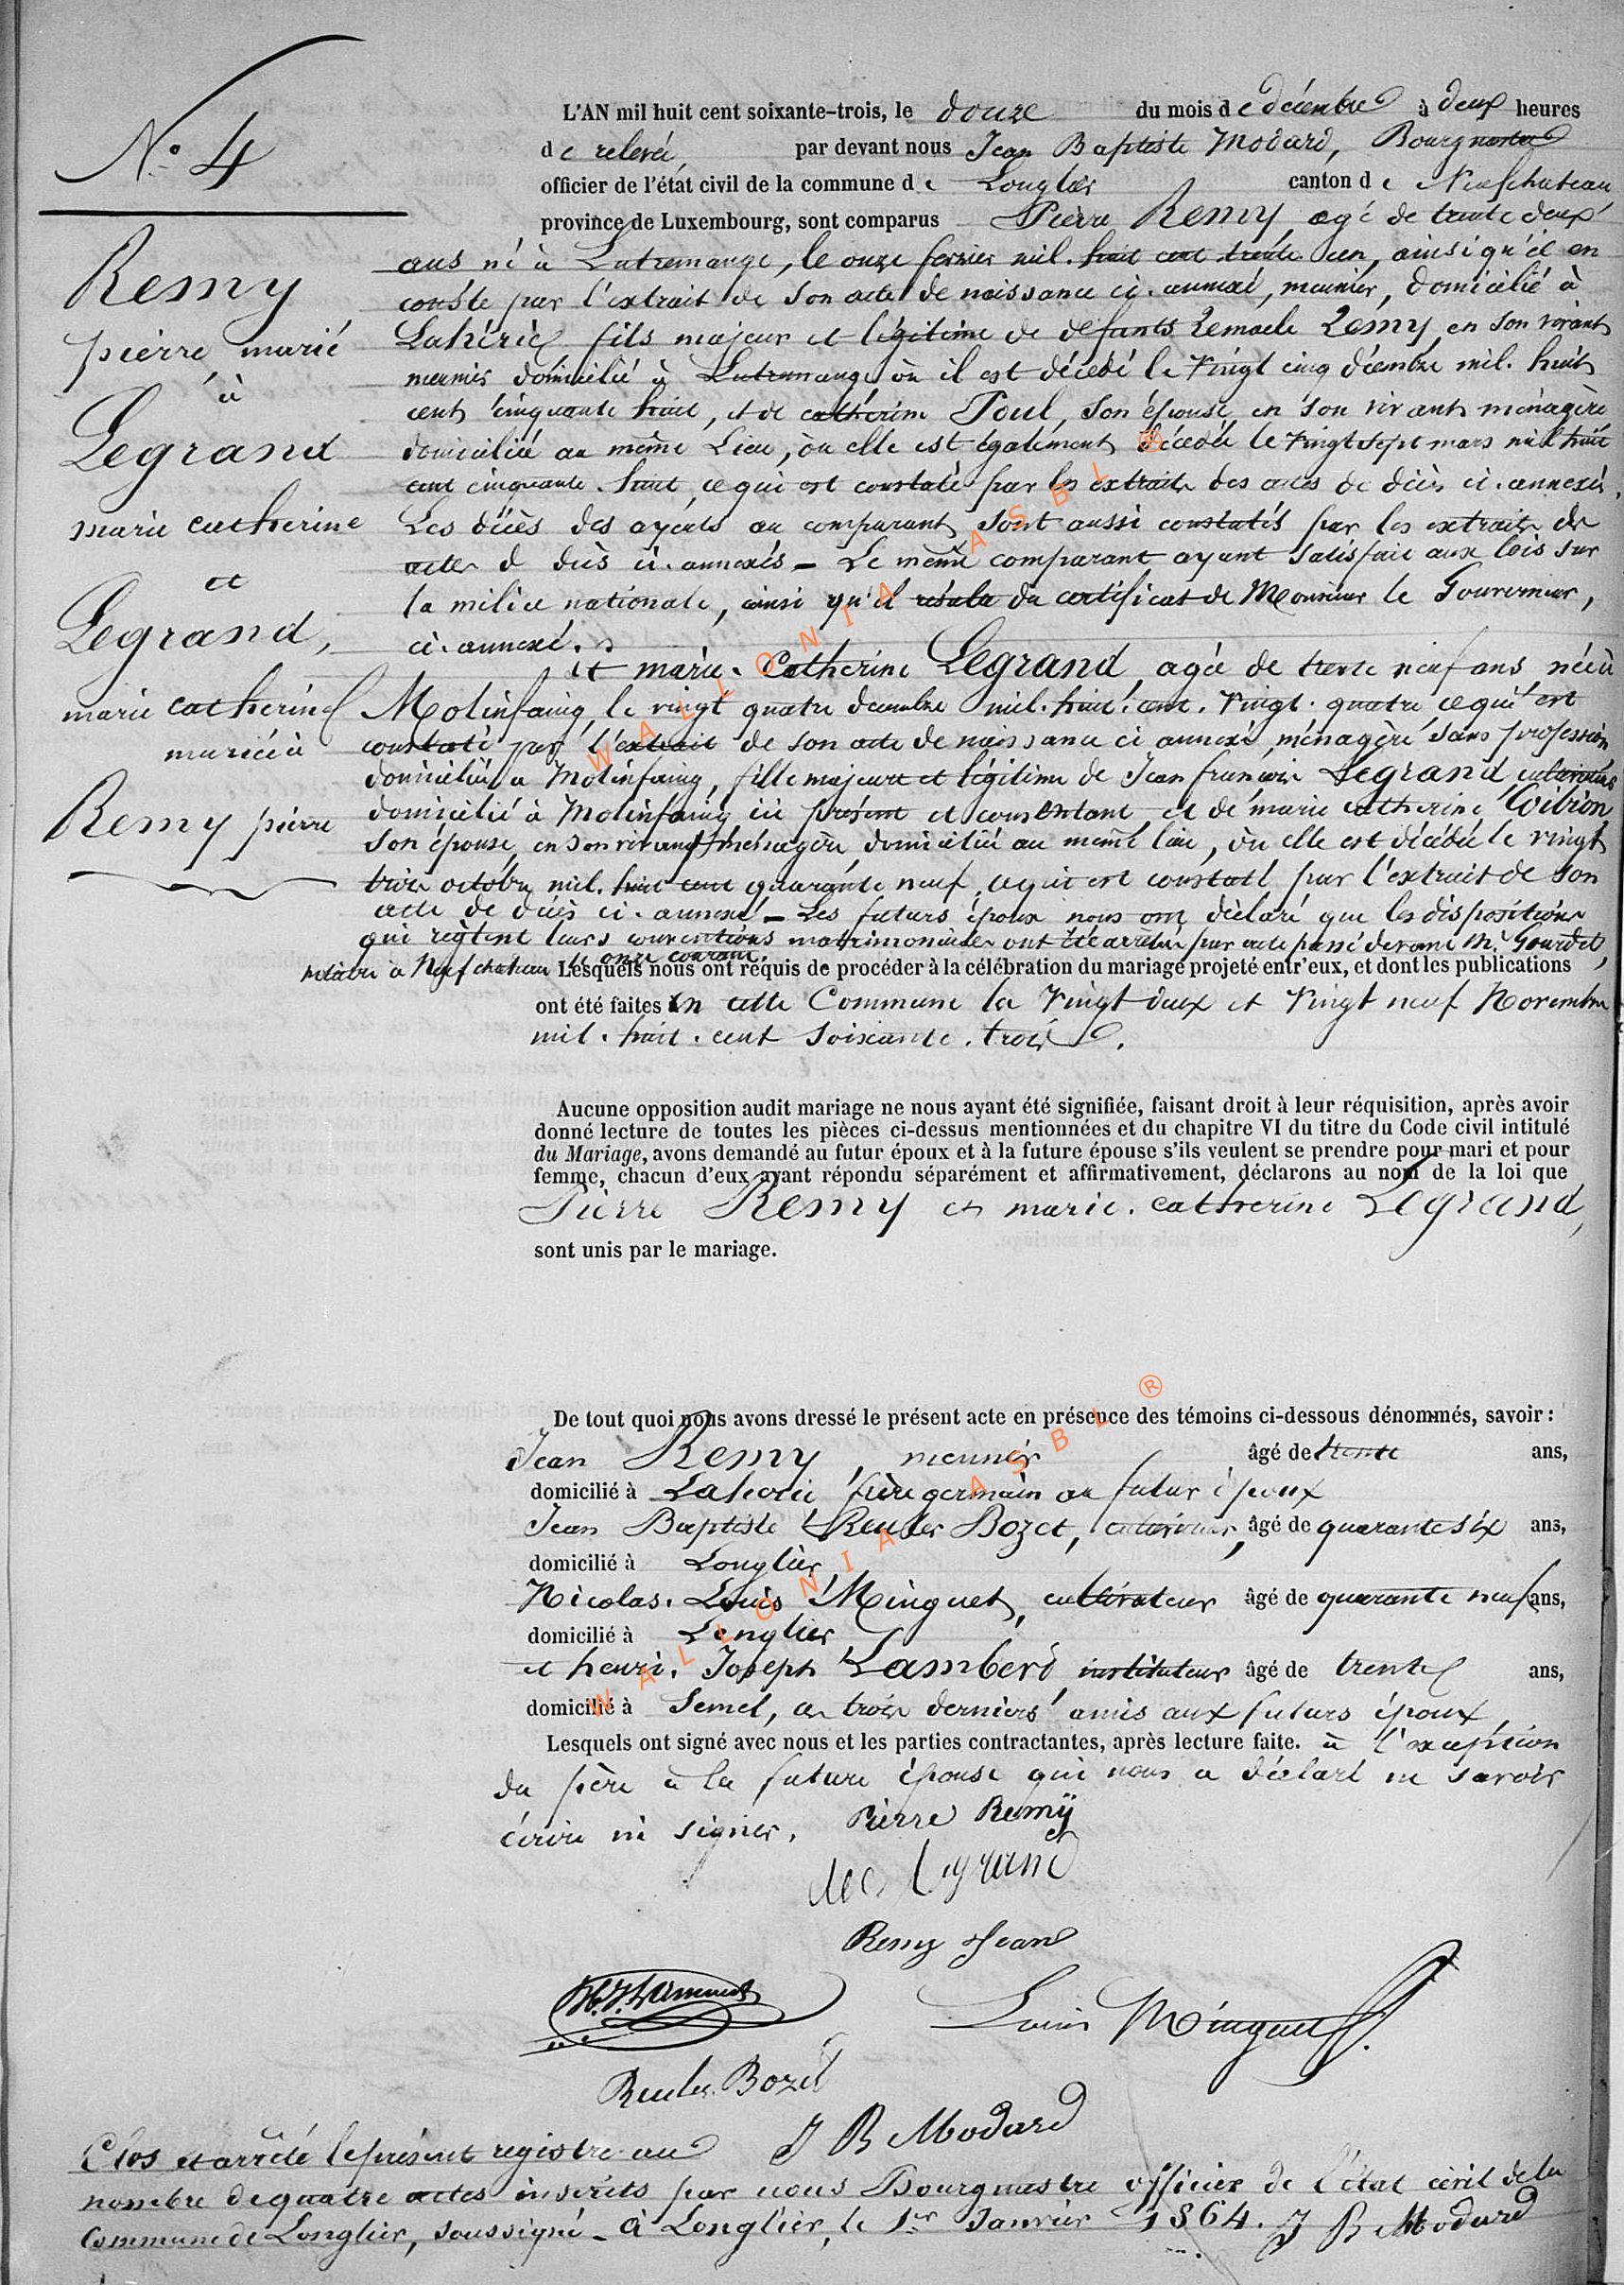 N.° 4
Remy
pierre marié
à
Legrand
marie catherine
et
Legrand,
marie catherine
mariée à
Remy pierre
L'AN mil huit cent soixante-trois, le douze du mois de décembre à deux heures
de relevée, par devant nous Jean Baptiste Modard, Bourgmestre
officier de l'état civil de la commune de Longlier canton de Neufchateau
province de Luxembourg, sont comparus Pierre Remy, agé de trente deux
ans né à Lutremange, le onze fevrier mil. huit cent trente un, ainsi qu'il en
conste par l'extrait de son acte de naissance ci. annexé, meunier, domicilié à
Lahérie fils majeur et légitime de defunts Remacle Remy, en son vivant
meunier domicilié à Lutremange où il est décédé le vingt cinq décembre mil. huit
cent cinquante huit, et de catherine Poul, son épouse, en son vivant ménagère
domiciliée au même Lieu, où elle est également décédée le vingt sept mars mil huit
cent cinquante. huit, ce qui est constaté par les extraits des actes de décès ci. annexés.
Les décès des ayeuls au comparant sont aussi constatés par les extraits de
actes d decès ci. annexés _ Le même comparant ayant satisfait aux lois sur
la milice nationale, ainsi qu'il résulte du certificat de Monsieur le Gouverneur,
ci. annexé.
Et marie. Catherine Legrand, agée de trente neuf ans, née à
Molinfaing, le vingt quatre decembre mil. huit. cent. vingt. quatre, ce qui est
constaté par l'extrait de son acte de naissance ci annexé, ménagère sans profession
domiciliée a Molinfaing, fille majeure et légitime de Jean françois Legrand, cultivateur
domicilié à Molinfaing ici présent et consentant et de marie catherine Coibion
son épouse, en son vivant ménagère, domiciliée au même lieu, où elle est décédée le vingt
trois octobre mil. huit cent quarante neuf, ce qui est constaté par l'extrait de son
acte de décès ci. annexé _ Les futurs époux nous ont déclaré que les dispositions
qui règlent leurs conventions matrimoniales ont été arrêtées par acte passé devant Mr. Gourdet,
notaire à Neufchateau le onze courant.
Lesquels nous ont requis de procéder à la célébration du mariage projeté entr'eux, et dont les publications
ont été faites En cette Commune le vingt deux et vingt neuf Novembre
mil. huit. cent soixante. trois.
Aucune opposition audit mariage ne nous ayant été signifiée, faisant droit à leur réquisition, après avoir
donné lecture de toutes les pièces ci-dessus mentionnées et du chapitre VI du titre du Code civil intitulé
du Mariage, avons demandé au futur époux et à la future épouse s'ils veulent se prendre pour mari et pour
femme, chacun d'eux ayant répondu séparément et affirmativement, déclarons au nom de la loi que
Pierre Remy et marie. catherine Legrand,
sont unis par le mariage.
De tout quoi nous avons dressé le présent acte en présence des témoins ci-dessous dénommés, savoir :
Jean Remy, meunier âgé de trente ans,
domicilié à Laherie frère germain au futur époux
Jean Baptiste Reuler Bozet, cultivateur, âgé de quarante six ans,
domicilié à Longlier
Nicolas. Louis Minguet, cultivateur âgé de quarante neuf ans,
domicilié à Longlier
et henri. Joseph Lambert instituteur âgé de trente ans,
domicilié à Semel, ces trois derniers amis aux futurs époux
Lesquels ont signé avec nous et les parties contractantes, après lecture faite. à l'exception
du père à la future épouse qui nous a déclaré ne savoir
écrire ni signer.
Pierre Remÿ
MC Legrand
Remy Jean
Louis Minguet
Reuler Bozet
J B Modard
Clos et arrêté le présent registre au
nombre de quatre actes inscrits par nous Bourgmestre officier de l'état civil de la
Commune de Longlier, soussigné _ à Longlier, le 1er Janvier 1864. J B Modard
WALLONIA ASBL ®
WALLONIA ASBL ®